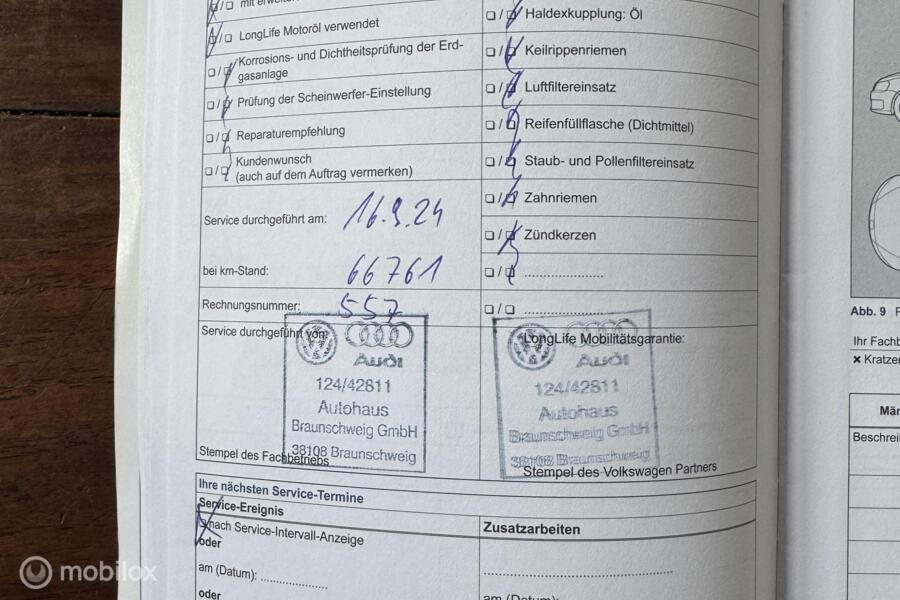 mit
LongLife Motoröl verwendet
Korrosions- und Dichtheitsprüfung der Erd-
gasanlage
Prüfung der Scheinwerfer-Einstellung
Reparaturempfehlung
Kundenwunsch
(auch auf dem Auftrag vermerken)
Service durchgeführt am: 16.9.24
bei km-Stand: 66761
Rechnungsnummer: 557
Service durchgeführt von:
Audi
124/42811
Autohaus
Braunschweig GmbH
38108 Braunschweig
Stempel des Fachbetriebs
Haldexkupplung: Öl
Keilrippenriemen
Luftfiltereinsatz
Reifenfüllflasche (Dichtmittel)
Staub- und Pollenfiltereinsatz
Zahnriemen
Zündkerzen
LongLife Mobilitätsgarantie:
Audi
124/42811
Autohaus
Braunschweig GmbH
38108 Braunschweig
Stempel des Volkswagen Partners
Ihre nächsten Service-Termine
Service-Ereignis
nach Service-Intervall-Anzeige
oder
am (Datum):
oder
Zusatzarbeiten
am (Datum):
Abb. 9
Ihr Fachb
Kratze
Män
Beschrei
mobilox